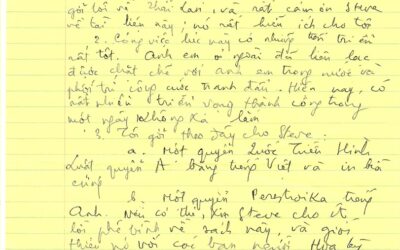 gởi tới về Thái Lan, và rất cám ơn Steve
về tài liệu này, nó rất hữu ích cho tôi
2. Công việc lúc này có những tiến triển
rất tốt. Anh em ở ngoài đã liên lạc
được chặt chẽ với anh em trong nước và
phối trí công cuộc tranh đấu. Hiện nay, có
rất nhiều triển vọng thành công trong
một ngày không xa lắm
3. Tôi gởi theo đây cho Steve:
a. Một quyển Quốc Triều Hình
Luật quyển A bằng tiếng Việt và in bìa
cứng
b. Một quyển Perestroika tiếng
Anh. Nếu có thể, xin Steve cho
lời phê bình về sách này, và giới
thiệu nó với các bạn người Hoa Kỳ